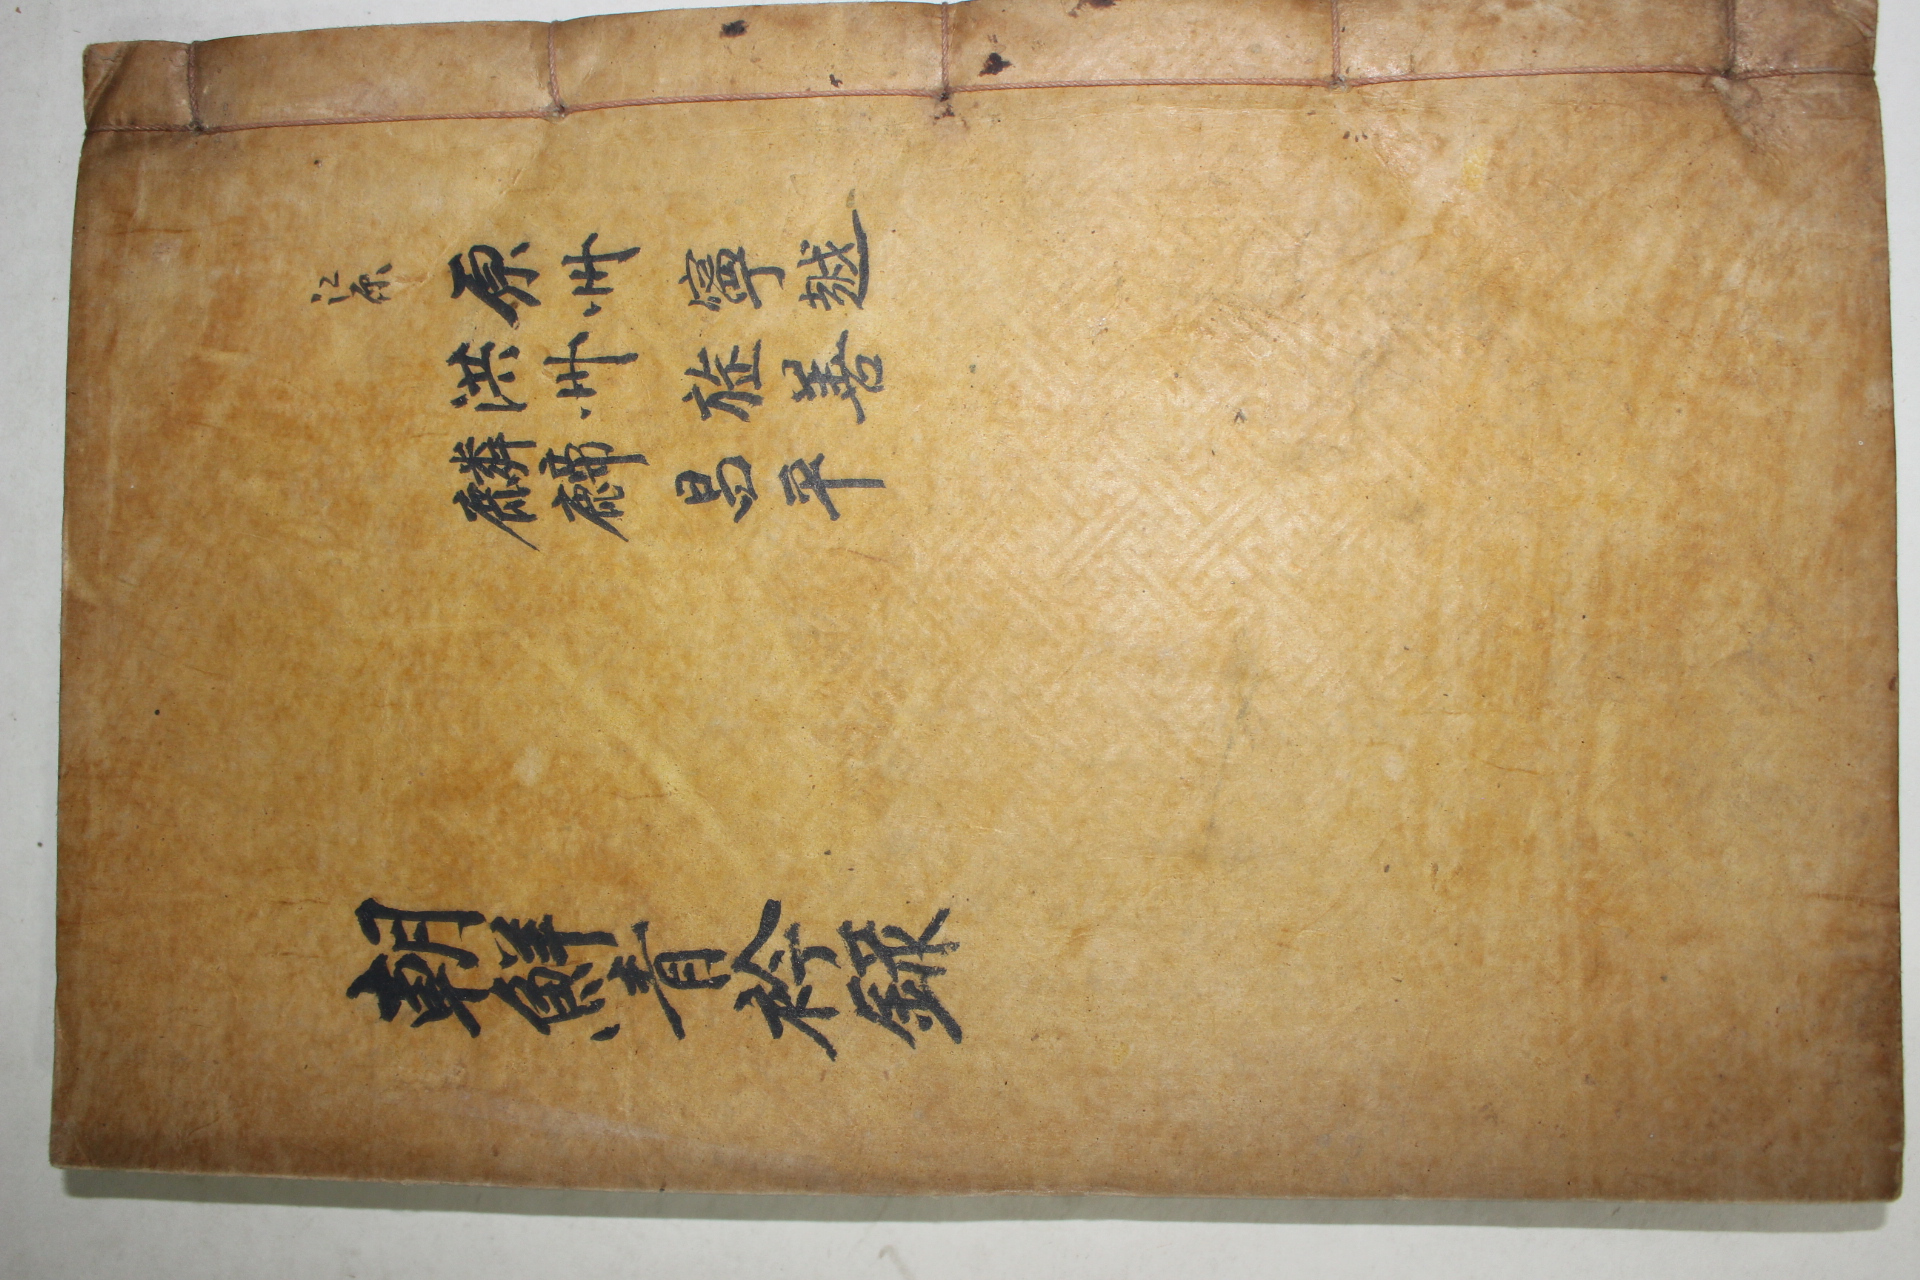 江原
原州 寧越
洪州 旌善
麟蹄 昌平
朝鮮青衿錄